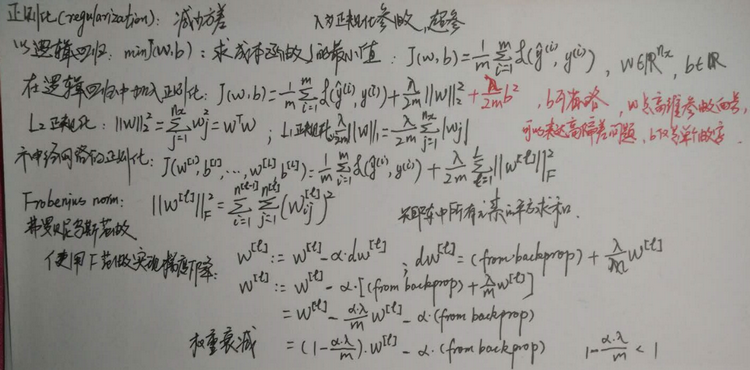 正则化(regularization): 减小方差 λ为正则化参数, 超参
以逻辑回归: minJ(w,b): 求成本函数J的最小值: J(w,b)=1/m Σ_{i=1}^{m} L(ŷ^{(i)}, y^{(i)}), w∈ℝ^{n_x}, b∈ℝ
在逻辑回归中加入正则化: J(w,b)=1/m Σ_{i=1}^{m} L(ŷ^{(i)}, y^{(i)})+λ/2m ||w||_2^2 + λ/2m b², b可省略, w是高维参数向量,
可以表达高偏差问题, b仅是单个数字.
L₂正则化: ||w||_2^2=Σ_{j=1}^{n_x} w_j^2=w^T w; L₁正则化 λ/2m ||w||_1=λ/2m Σ_{j=1}^{n_x}|w_j|
神经网络的正则化: J(w^{[1]},b^{[1]},…,w^{[L]},b^{[L]})=1/m Σ_{i=1}^{m} L(ŷ^{(i)},y^{(i)})+λ/2m Σ_{ℓ=1}^{L}||w^{[ℓ]}||_F^2
Frobenius norm: ||w^{[ℓ]}||_F^2=Σ_{i=1}^{n^{[ℓ-1]}} Σ_{j=1}^{n^{[ℓ]}}(w_{ij}^{[ℓ]})² 矩阵中所有元素的平方求和.
弗罗贝尼乌斯范数
使用F范数实现梯度下降: w^{[ℓ]}:=w^{[ℓ]}-α·dw^{[ℓ]}; dw^{[ℓ]}=(from backprop)+λ/m w^{[ℓ]}
w^{[ℓ]}:=w^{[ℓ]}-α·[(from backprop)+λ/m w^{[ℓ]}]
=w^{[ℓ]}-α·λ/m w^{[ℓ]}-α·(from backprop)
权重衰减 =(1-α·λ/m)·w^{[ℓ]}-α·(from backprop) 1-α·λ/m<1